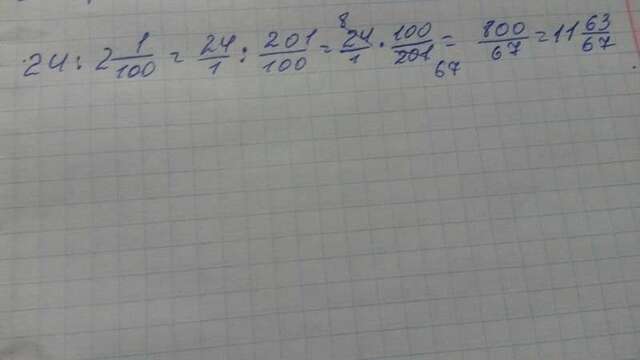 24 : 2 1/100 = 24/1 : 201/100 = 24/1 8 · 100/201 67 = 800/67 = 11 63/67